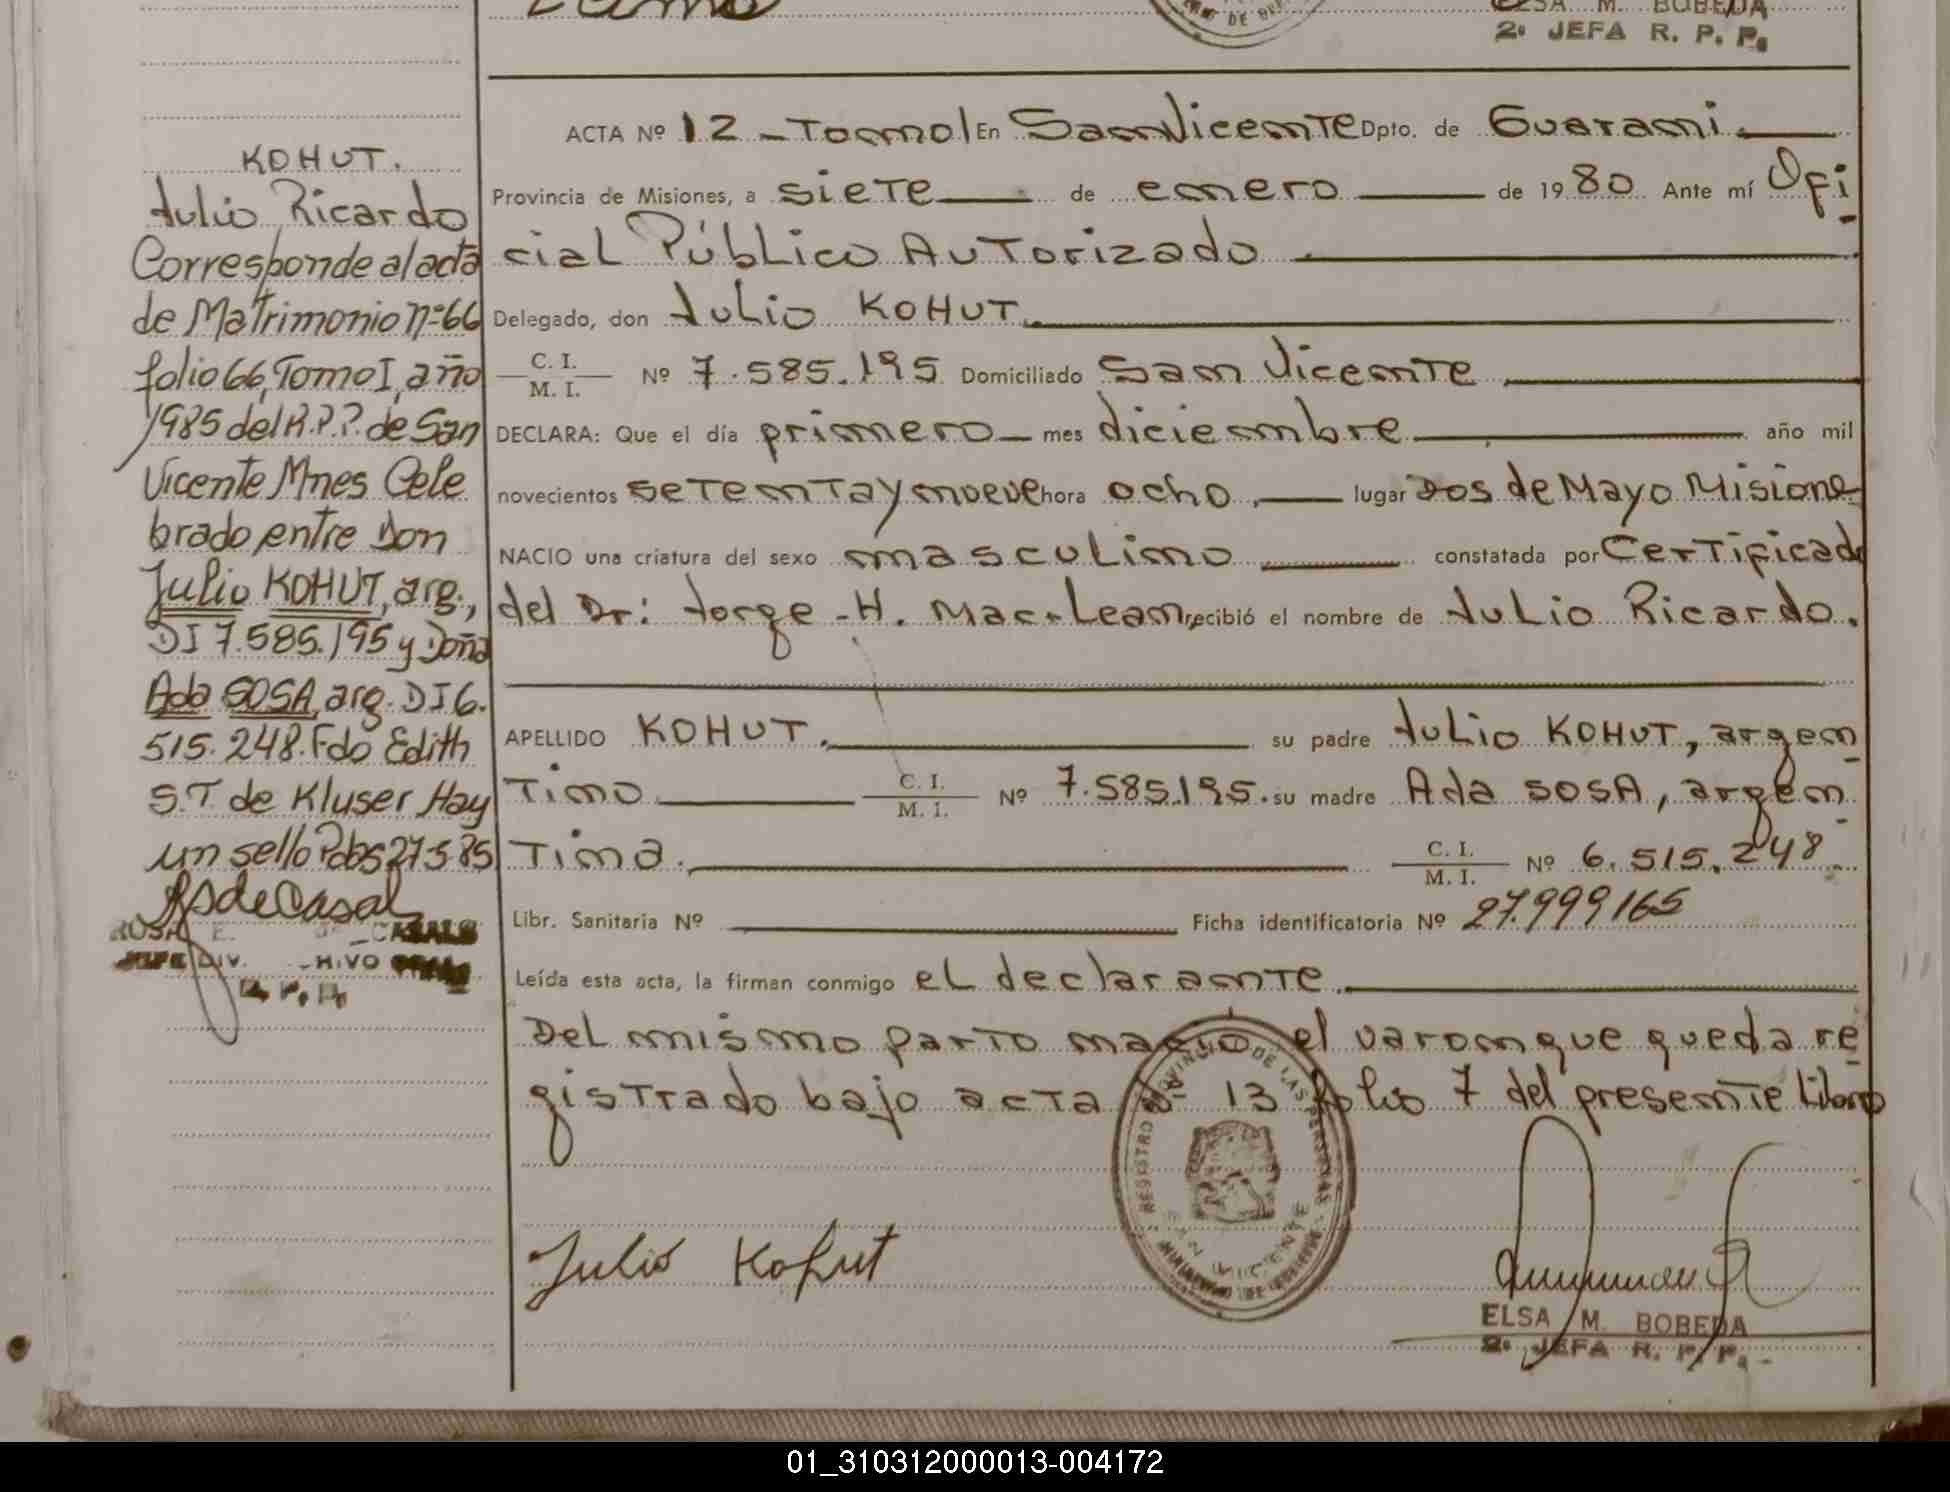 ELSA M. BOBEDA
2º JEFA R. P. P.
KOHUT.
Julio Ricardo
Corresponde al acta
de Matrimonio nº 66
folio 66, Tomo I, año
1985 del R.P.P. de San
Vicente Mnes Cele
brado entre Don
Julio KOHUT, arg.,
DI 7.585.195 y Doña
Ada SOSA, arg. DI 6.
515.248. Fdo Edith
S.T. de Kluser Hay
un sello Pdas 27-5-85
RSdeCasal
ROSA E. CASALS
JEFE DIV. R. P. P.
ACTA Nº 12 - Tomo I En San Vicente Dpto. de Guarani.
Provincia de Misiones, a siete de enero de 1980 Ante mí Ofi
cial Público Autorizado
Delegado, don Julio KOHUT.
C. I.
M. I. Nº 7.585.195 Domiciliado San Vicente
DECLARA: Que el día primero mes diciembre año mil
novecientos setenta y nueve hora ocho lugar Dos de Mayo Misione
NACIO una criatura del sexo masculino constatada por Certificado
del Dr: Jorge H. Mac-Lean recibió el nombre de Julio Ricardo.
APELLIDO KOHUT. su padre Julio KOHUT, argen
tino C. I.
M. I. Nº 7.585.195. su madre Ada SOSA, argen
tina. C. I.
M. I. Nº 6.515.248
Libr. Sanitaria Nº Ficha identificatoria Nº 27.999165
Leída esta acta, la firman conmigo el declarante.
Del mismo parto nació el varon que queda re
gistrado bajo acta nº 13 folio 7 del presente Libro
REGISTRO PROVINCIAL DE LAS PERSONAS
SAN VICENTE
Julio Kohut
ELSA M. BOBEDA
2º JEFA R. P. P.
01_310312000013-004172